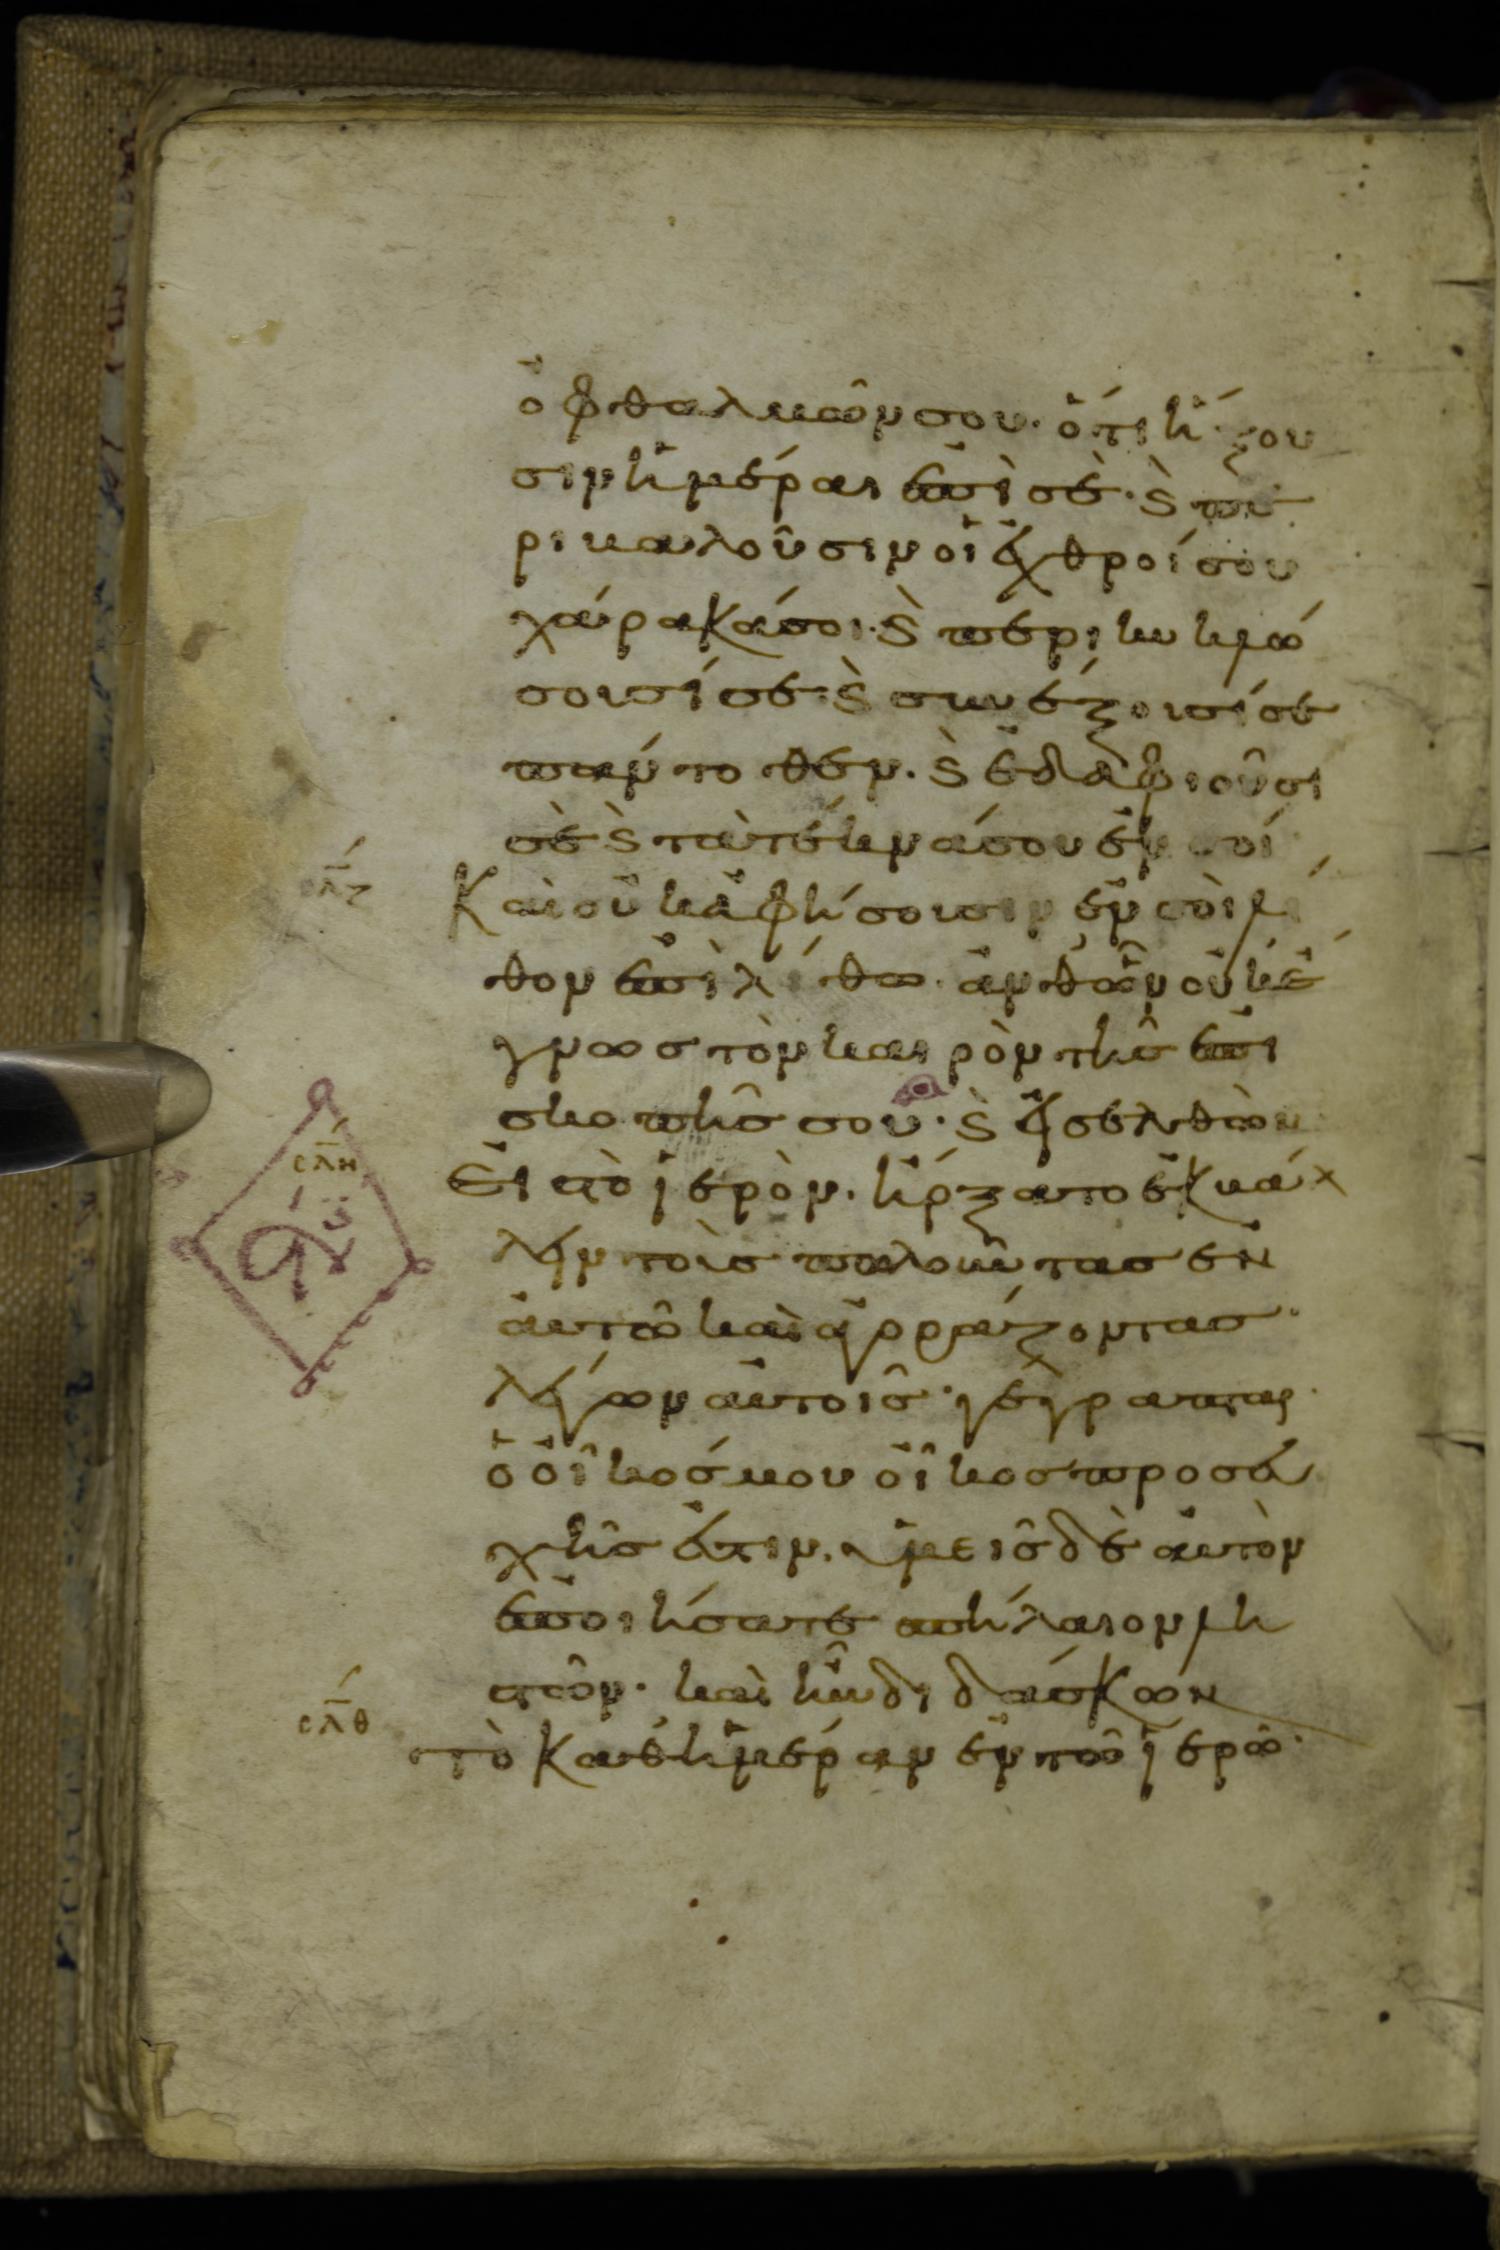 ὀφθαλμῶν σου· ὅτι ἥξου
σιν ἡμέραι ἐπὶ σέ· ϗ πε
ρικαλοῦσιν οἱ ἐχθροί σου
χάρακά σοι· ϗ περικυκλώ
σουσί σε· ϗ συνέξουσί σε
πάντοθεν· ϗ ἐδαφιοῦσί
σε ϗ τὰ τέκνα σου ἐν σοί
σλζ
Καὶ οὐκ ἀφήσουσιν ἐν σοὶ λί
θον ἐπὶ λίθω· ἀνθ' ὧν οὐκ ἔ
γνως τὸν καιρὸν τῆς ἐπι
σκοπῆς σου· ϗ εἰσελθὼν
σλη
Εἰς τὸ ἱερὸν· ἤρξατο ἐκβάλ
λειν τοὺς πωλοῦντας ἐν
αὐτῶ καὶ ἀγοράζοντας·
λέγων αὐτοῖς· γέγραπται
ὁ οἶκός μου οἶκος προσευ
χῆς ἐστιν· ὑμεῖς δὲ αὐτὸν
ἐποιήσατε σπήλαιον λη
στῶν· καὶ ἦν διδάσκων
σλθ
τὸ καθ' ἡμέραν ἐν τῶ ἱερῶ·